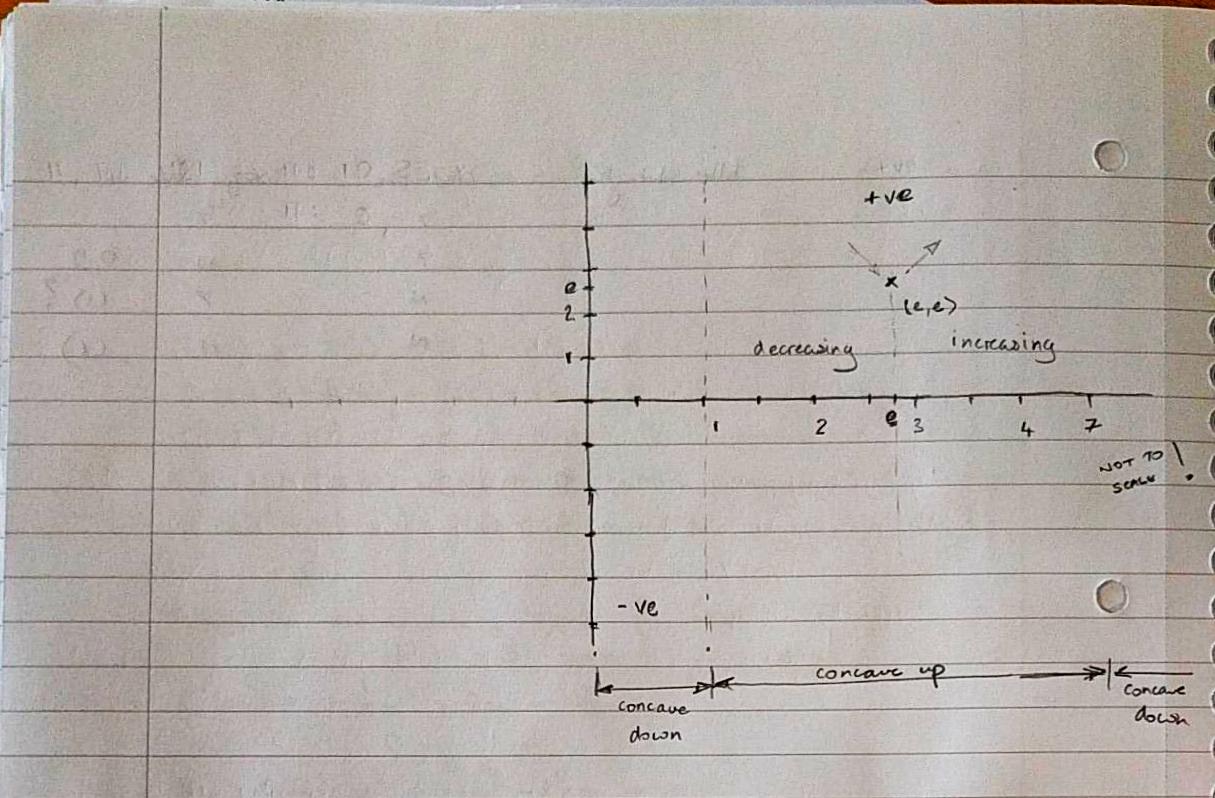 +ve
e
(e,e)
2
decreasing
increasing
1
1
2
e
3
4
7
NOT TO
SCALE !
- ve
concave up
concave
down
concave
down